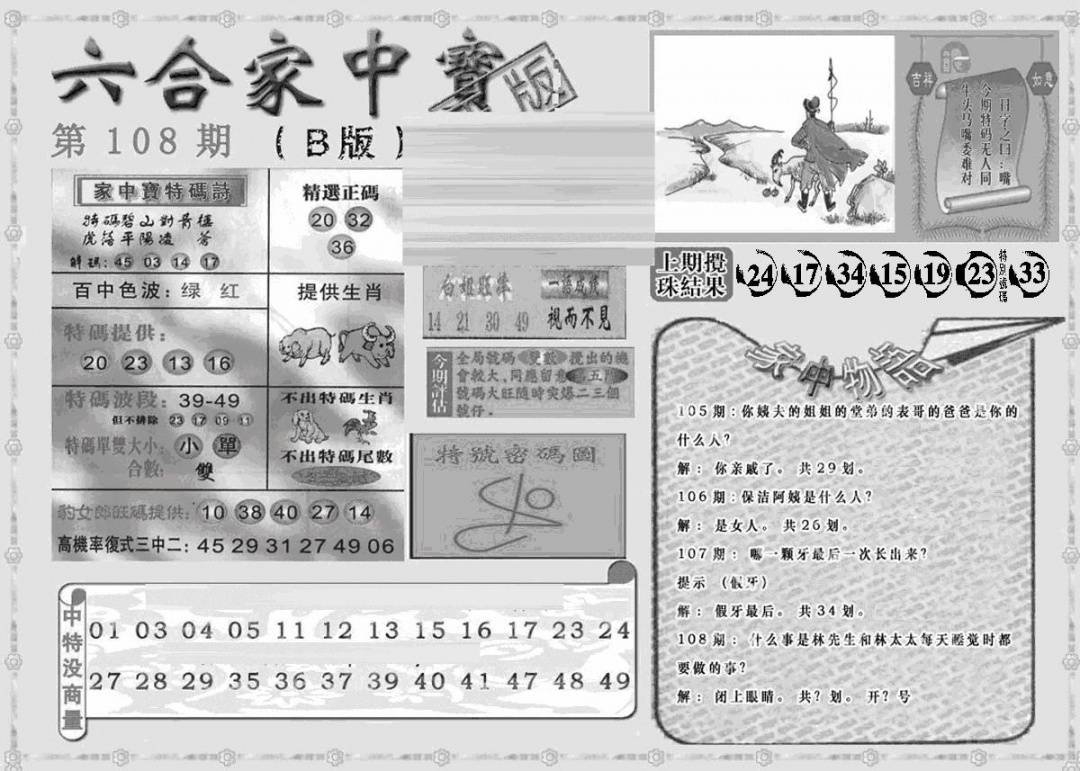 六合家中寶
版
第 108 期 (B版)
家中寶特碼詩
特碼碧山對青樓
虎落平陽凌 苍
解碼：45 03 14 17
精選正碼
20 32
36
百中色波：绿 红
提供生肖
特碼提供：
20 23 13 16
特碼波段：39-49
但不排除 23 17 09 11
特碼單雙大小：小 單
合數：雙
不出特碼生肖
不出特碼尾數
豹女郎旺碼提供：10 38 40 27 14
高機率復式三中二：45 29 31 27 49 06
白姐旺棒
14 21 30 49
視而不見
今期評估
全局號碼雙數攪出的機
會較大，同應留意第五
號碼大旺随時突爆二三個
號仔．
特號密碼圖
吉祥
如意
一日字之曰：嘴
今期特码无人同
牛头马嘴委难对
上期攪珠結果
24 17 34 15 19 23 特别號碼 33
家中物語
105期：你姨夫的姐姐的堂弟的表哥的爸爸是你的
什么人？
解：你亲戚了。 共29划。
106期：保洁阿姨是什么人？
解：是女人。 共26划。
107期：哪一颗牙最后一次长出来？
提示 （假牙）
解：假牙最后。 共34划。
108期：什么事是林先生和林太太每天睡觉时都
要做的事？
解：闭上眼睛。 共？划。 开？号
中特没商量
01 03 04 05 11 12 13 15 16 17 23 24
27 28 29 35 36 37 39 40 41 47 48 49